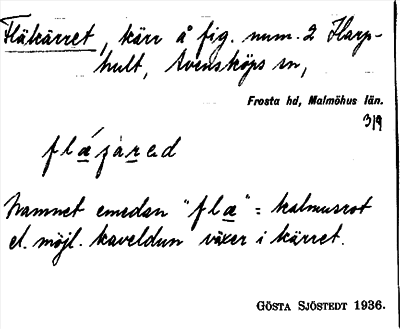 Fläkärret, kärr å fig. num. 2 Harp-
hult, Svensköps sn,
Frosta hd, Malmöhus län.
319
Namnet emedan "flæ" = kalmusrot
el. möjl. kaveldun växer i kärret.
GÖSTA SJÖSTEDT 1936.